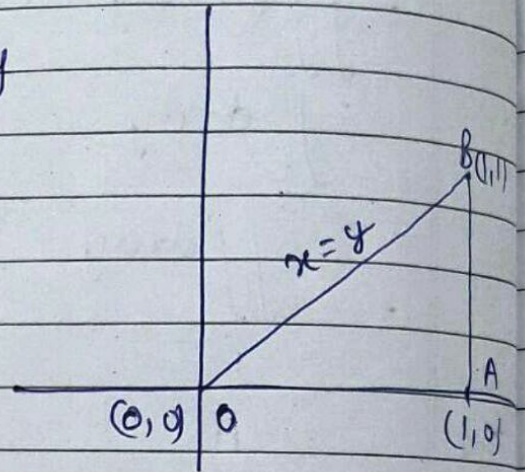 B(1,1)
x=y
A
(0,0) O
(1,0)